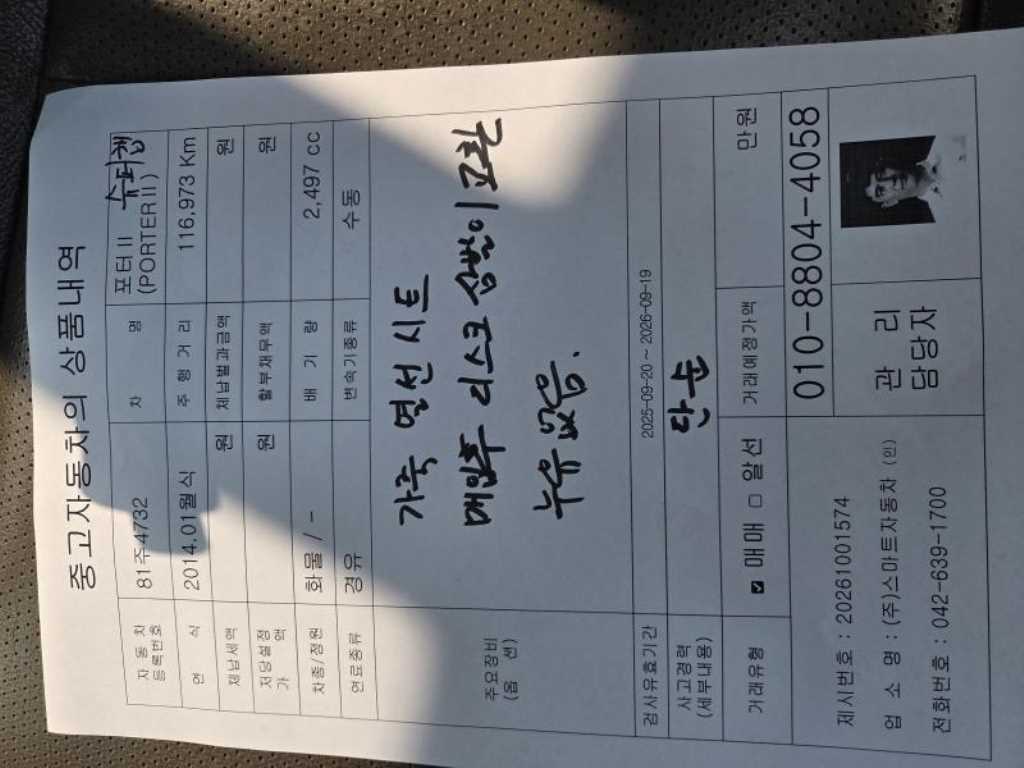 중고자동차의 상품내역
자동차 등록번호 81주4732 차 명 포터II 슈퍼캡 (PORTER II)
연 식 2014.01월식 주 행 거 리 116,973 Km
체납세액 원 체납범과금액 원
저당설정가액 원 할부채무액 원
차종/정원 화물 / - 배 기 량 2,497 cc
연료종류 경유 변속기종류 수동
주요장비 (옵 션)
가죽 열선 시트
매입후 리스크 삼발이 교환
누유 없음.
검사유효기간 2025-09-20 ~ 2026-09-19
사고경력 (세부내용) 단순
거래유형 ☑ 매매 □ 알선 거래예정가액 만원
제시번호 : 202610001574
업 소 명 : (주)스마트자동차 (인)
전화번호 : 042-639-1700
010-8804-4058
관 리
담당자